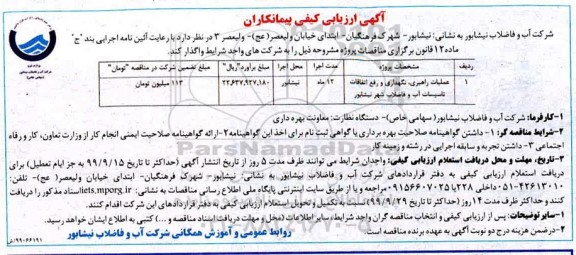 آگهی ارزیابی کیفی پیمانکاران
شرکت آب و فاضلاب نیشابور به نشانی: نیشابور- شهرک فرهنگیان- ابتدای خیابان ولیعصر(عج)- ولیعصر ۳ در نظر دارد با رعایت آئین نامه اجرایی بند "ج"
ماده ۱۲ قانون برگزاری مناقصات پروژه مشروحه ذیل را به شرکت های واجد شرایط واگذار کند.
ردیف مشخصات پروژه مدت اجرا محل اجرا مبلغ برآورد"ریال" مبلغ تضمین شرکت در مناقصه "تومان"
۱ عملیات راهبری، نگهداری و رفع اتفاقات تاسیسات آب و فاضلاب شهر نیشابور ۱۲ ماه نیشابور ۲۲,۶۳۷,۹۲۷,۱۸۰ ۱۱۳ میلیون تومان
۱-کارفرما: شرکت آب و فاضلاب نیشابور( سهامی خاص)- دستگاه نظارت: معاونت بهره داری
۲-شرایط مناقصه گر: ۱- داشتن گواهینامه صلاحیت بهره برداری یا گواهی ثبت نام برای اخذ این گواهینامه ۲-ارائه گواهینامه صلاحیت ایمنی انجام کار از وزارت تعاون، کار و رفاه
اجتماعی ۳- داشتن تجربه و سابقه اجرایی در رشته و زمینه کار
۳-تاریخ، مهلت و محل دریافت استعلام ارزیابی کیفی: واجدان شرایط می توانند ظرف مدت ۵ روز از تاریخ انتشار آگهی (حداکثر تا تاریخ ۹۹/۹/۱۵ به جز ایام تعطیل) برای
دریافت استعلام ارزیابی کیفی به دفتر قراردادهای شرکت آب و فاضلاب نیشابور به نشانی: نیشابور- شهرک فرهنگیان- ابتدای خیابان ولیعصر( عج)- تلفن:
۴۲۶۱۳۰۱۰-۰۵۱ داخلی ۲۲۸ یا ۰۹۱۵۶۶۰۷۰۲۵ مراجعه و یا از طریق سایت اینترنتی پایگاه ملی اطلاع رسانی مناقصات به نشانی: iets.mporg.ir اسناد مذکور را دریافت
کنند و حداکثر ظرف مدت ۱۴ روز (حداکثر تا تاریخ ۹۹/۹/۲۹) نسبت به تکمیل و تحویل استعلام ارزیابی کیفی به دفتر قراردادهای این شرکت اقدام کنند.
۱-سایر توضیحات: پس از ارزیابی کیفی و انتخاب مناقصه گران واجد شرایط، سایر اطلاعات (محل و مهلت دریافت اسناد مناقصه و ...) کتبی به اطلاع ایشان خواهد رسید.
۲-درضمن هزینه درج دو نوبت آگهی به عهده برنده مناقصه است.
روابط عمومی و آموزش همگانی شرکت آب و فاضلاب نیشابور